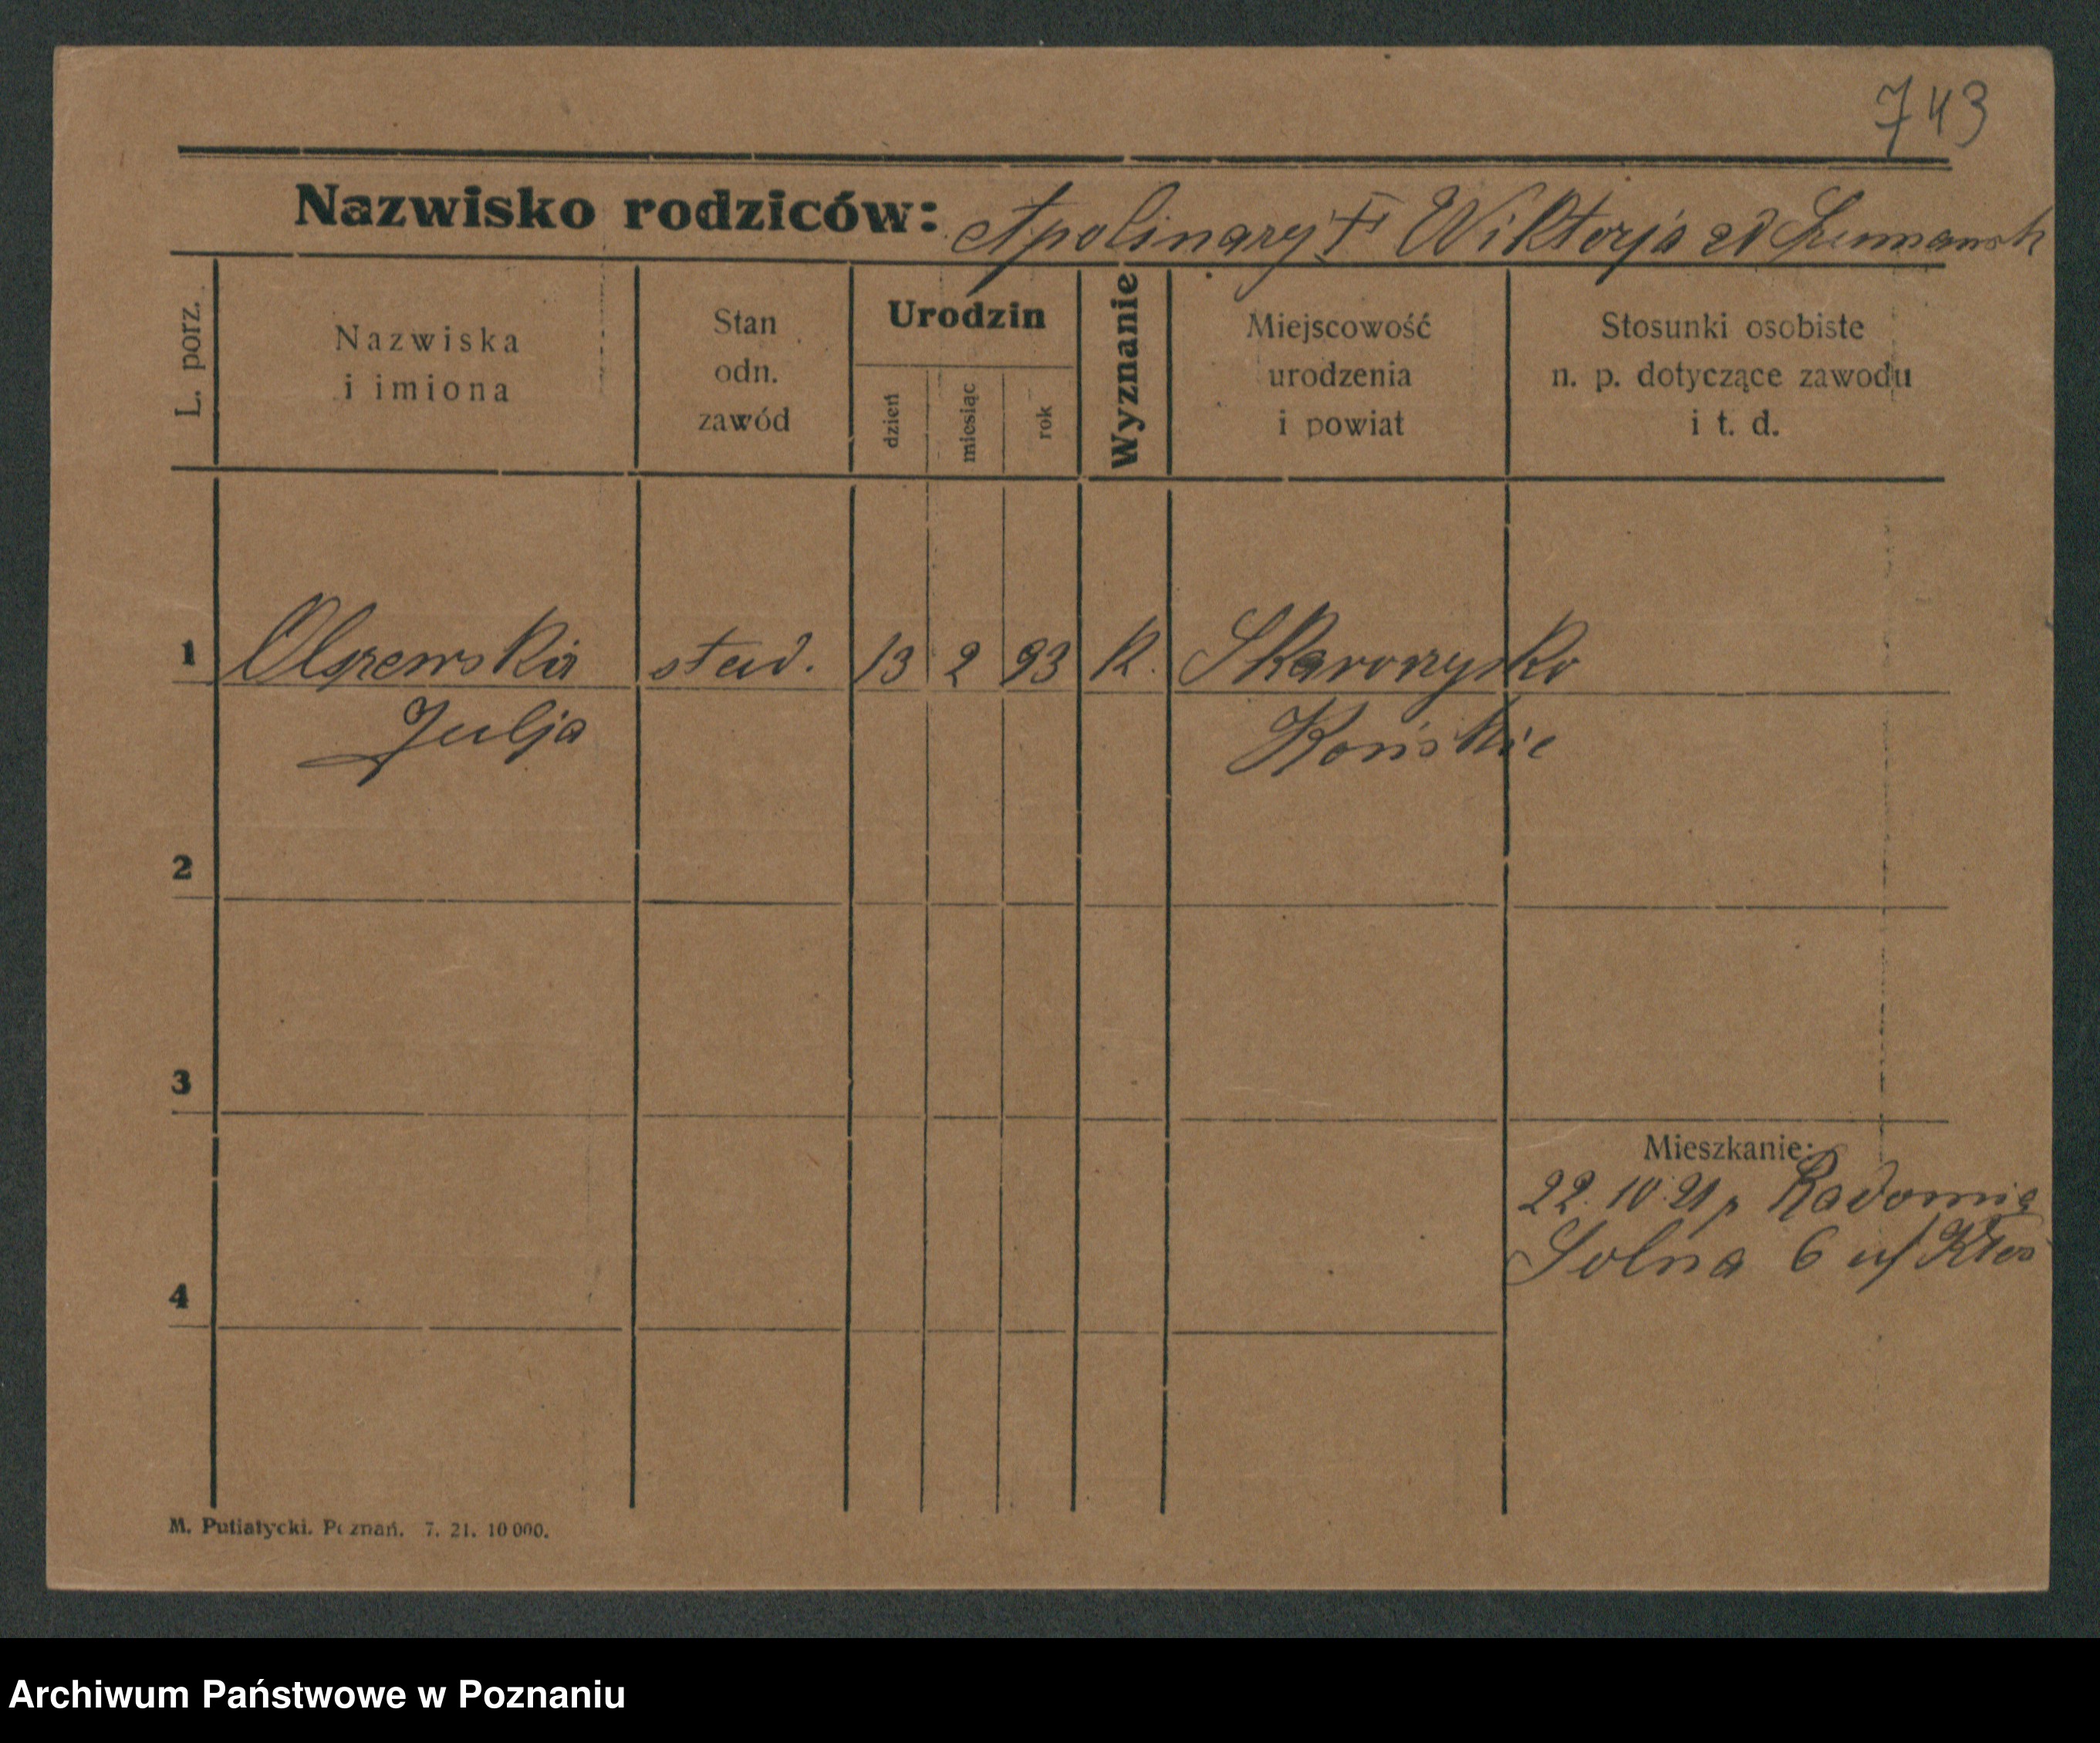 743
Nazwisko rodziców: Apolinary + Wiktorja
L. porz.
Nazwiska
i imiona
Stan
odn.
zawód
Urodzin
dzień
miesiąc
rok
Wyznanie
Miejscowość
urodzenia
i powiat
Stosunki osobiste
n. p. dotyczące zawodu
i t. d.
1 Olszewska 13 2 93 K. Skarorzysko
Julja Końskie
2
3
Mieszkanie:
22. 10. 21 Radomia
Solna 6
4
M. Putiatycki. Poznań. 7. 21. 10 000.
Archiwum Państwowe w Poznaniu